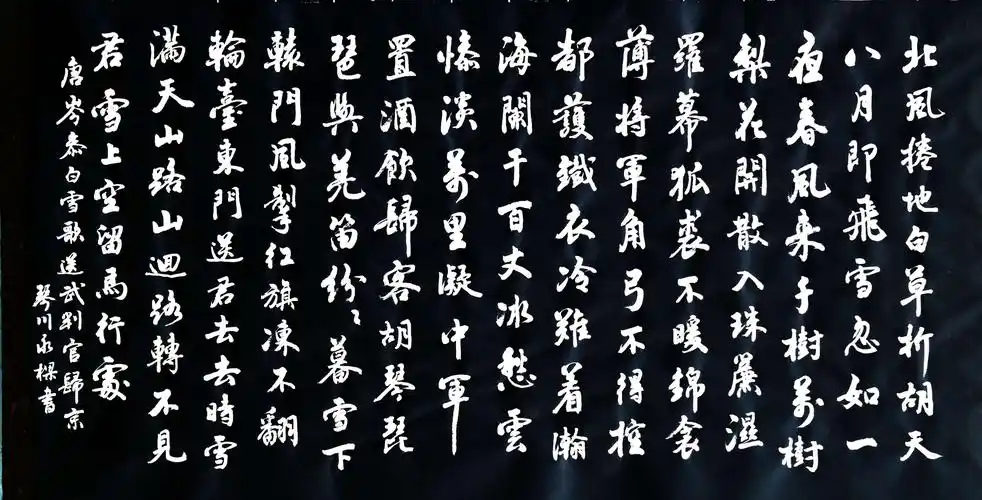 北風捲地白草折胡天
八月即飛雪忽如一
夜春風来千樹萬樹
梨花開散入珠簾濕
羅幕狐裘不暖錦衾
薄將軍角弓不得控
都護鐵衣冷難着瀚
海闌干百丈冰愁雲
慘淡萬里凝中軍
置酒飲歸客胡琴琵
琶與羌笛紛〻暮雪下
轅門風掣紅旗凍不翻
輪臺東門送君去去時雪
滿天山路山迴路轉不見
君雪上空留馬行處
唐岑參白雪歌送武判官歸京
琴川承樑書